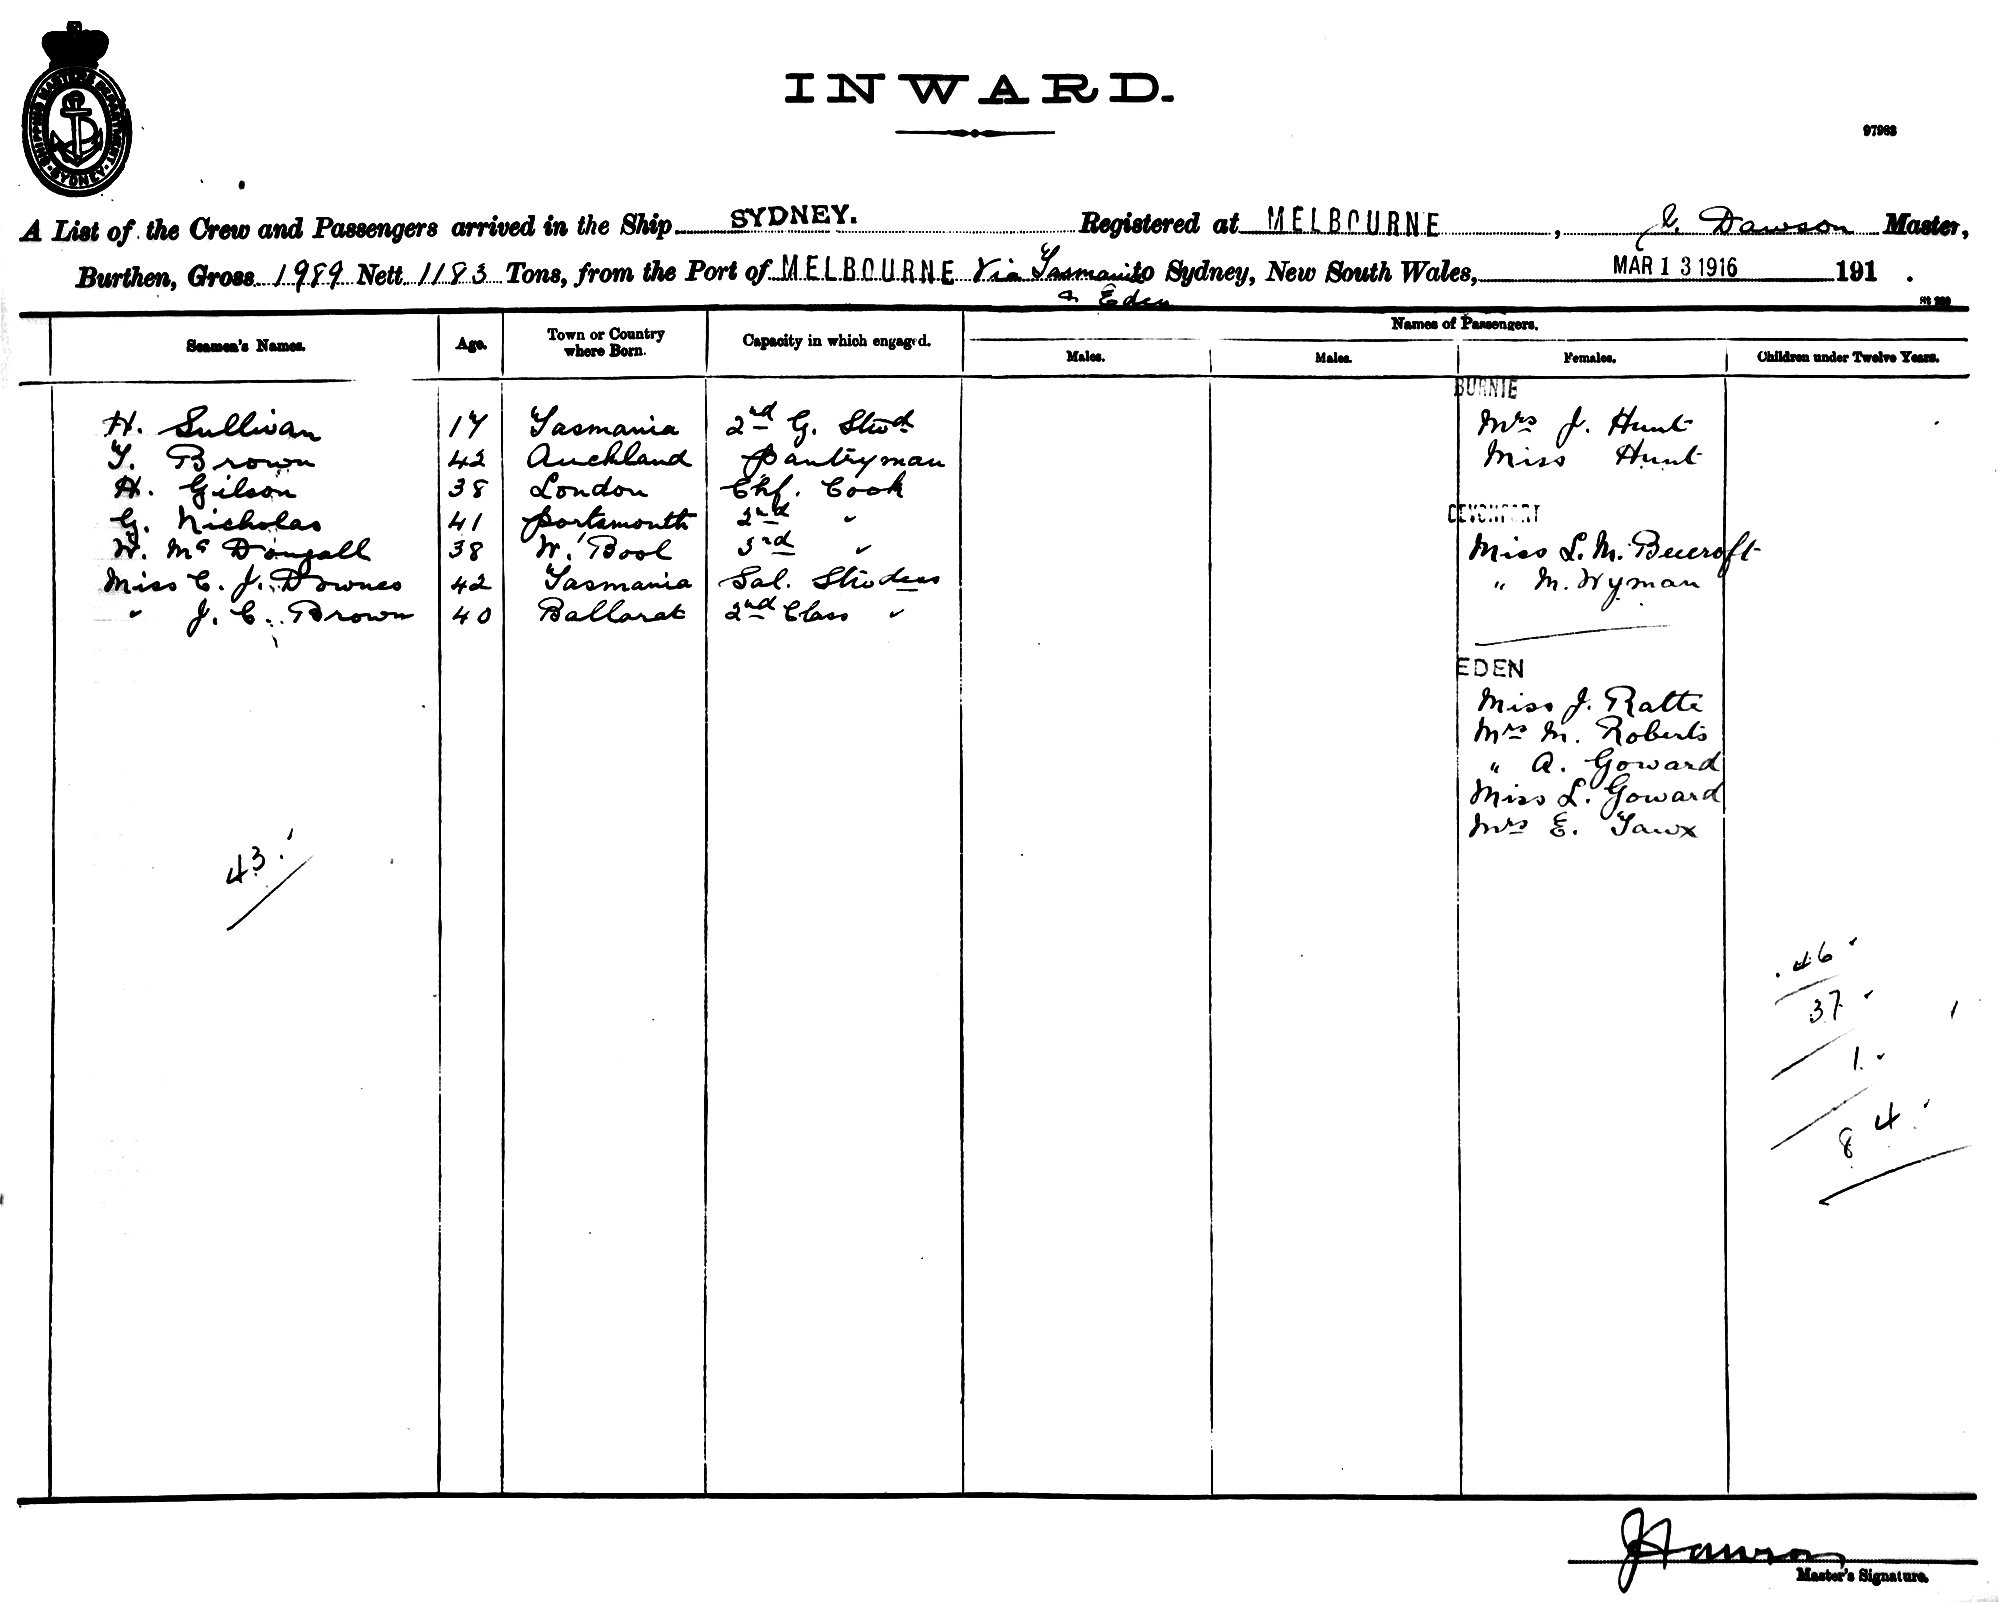 SHIPPING MASTERS DEPARTMENT
SYDNEY
INWARD.
97963
A List of the Crew and Passengers arrived in the Ship SYDNEY. Registered at MELBOURNE, Dawson Master,
Burthen, Gross 1989 Nett 1183 Tons, from the Port of MELBOURNE Via Tasmania to Sydney, New South Wales, MAR 13 1916 191 .
& Eden
Names of Passengers.
Seamen's Names. Age. Town or Country where Born. Capacity in which engaged. Males. Males. Females. Children under Twelve Years.
BURNIE
H. Sullivan 17 Tasmania 2nd G. Stwd Mrs J. Hunt
T. Brown 42 Auckland Pantryman Miss Hunt
H. Gilson 38 London Chf. Cook
G. Nicholas 41 Portsmouth 2nd " DEVONPORT
W. Mc Dougall 38 W. Bool 3rd " Miss L. M. Beecroft
Miss C. J. Downes 42 Tasmania Sal. Stwdess " M. Wyman
" J. C. Brown 40 Ballarat 2nd Class "
EDEN
Miss J. Ratte
Mrs M. Roberts
" A. Goward
Miss L. Goward
Mrs E.
43
46
37
1
84
Master's Signature.